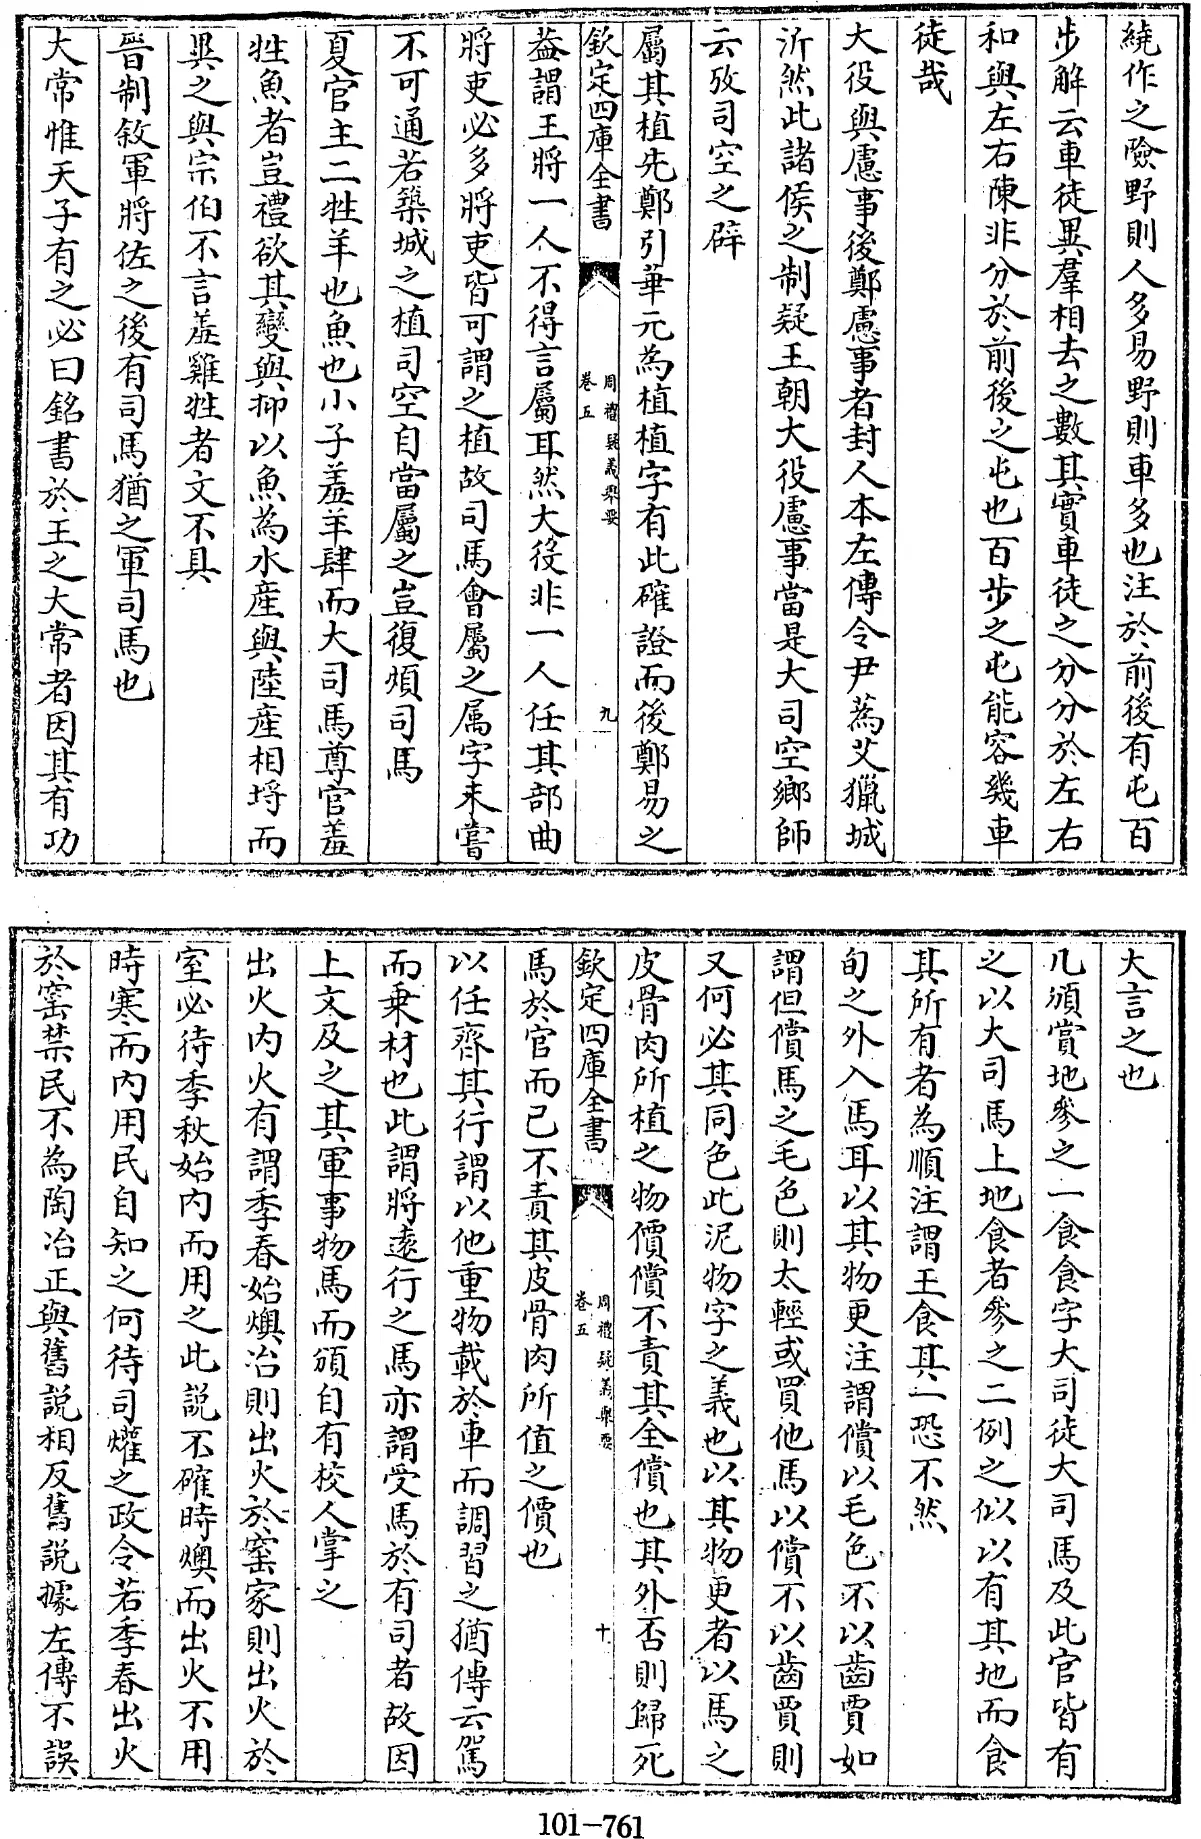 繞作之險野則人多易野則車多也注於前後有屯百
步解云車徒異羣相去之數其實車徒之分分於左右
和與左右陳非分於前後之屯也百步之屯能容幾車
徒哉
大役與慮事後鄭慮事者封人本左傳令尹蒍艾獵城
沂然此諸侯之制疑王朝大役慮事當是大司空鄉師
云攷司空之辟
屬其植先鄭引華元為植植字有此確證而後鄭易之
欽定四庫全書
周禮疑義舉要
卷五
九
蓋謂王將一人不得言屬耳然大役非一人任其部曲
將吏必多將吏皆可謂之植故司馬會屬之属字未嘗
不可通若築城之植司空自當屬之豈復煩司馬
夏官主二牲羊也魚也小子羞羊肆而大司馬尊官羞
牲魚者豈禮欲其變與抑以魚為水産與陸産相埒而
異之與宗伯不言羞雞牲者文不具
晉制敘軍將佐之後有司馬猶之軍司馬也
大常惟天子有之必曰銘書於王之大常者因其有功
大言之也
凡頒賞地參之一食食字大司徒大司馬及此官皆有
之以大司馬上地食者參之二例之似以有其地而食
其所有者為順注謂王食其一恐不然
旬之外入馬耳以其物更注謂償以毛色不以齒賈如
謂但償馬之毛色則太輕或買他馬以償不以齒賈則
又何必其同色此泥物字之義也以其物更者以馬之
皮骨肉所植之物價償不責其全償也其外否則歸死
欽定四庫全書
周禮疑義舉要
卷五
十
馬於官而已不責其皮骨肉所值之價也
以任齊其行謂以他重物載於車而調習之猶傳云駕
而乗材也此謂將逺行之馬亦謂受馬於有司者故因
上文及之其軍事物馬而頒自有校人掌之
出火内火有謂季春始燠冶則出火於窑家則出火於
室必待季秋始内而用之此説不確時燠而出火不用
時寒而内用民自知之何待司爟之政令若季春出火
於窑禁民不為陶冶正與舊説相反舊説據左傳不誤
101-761